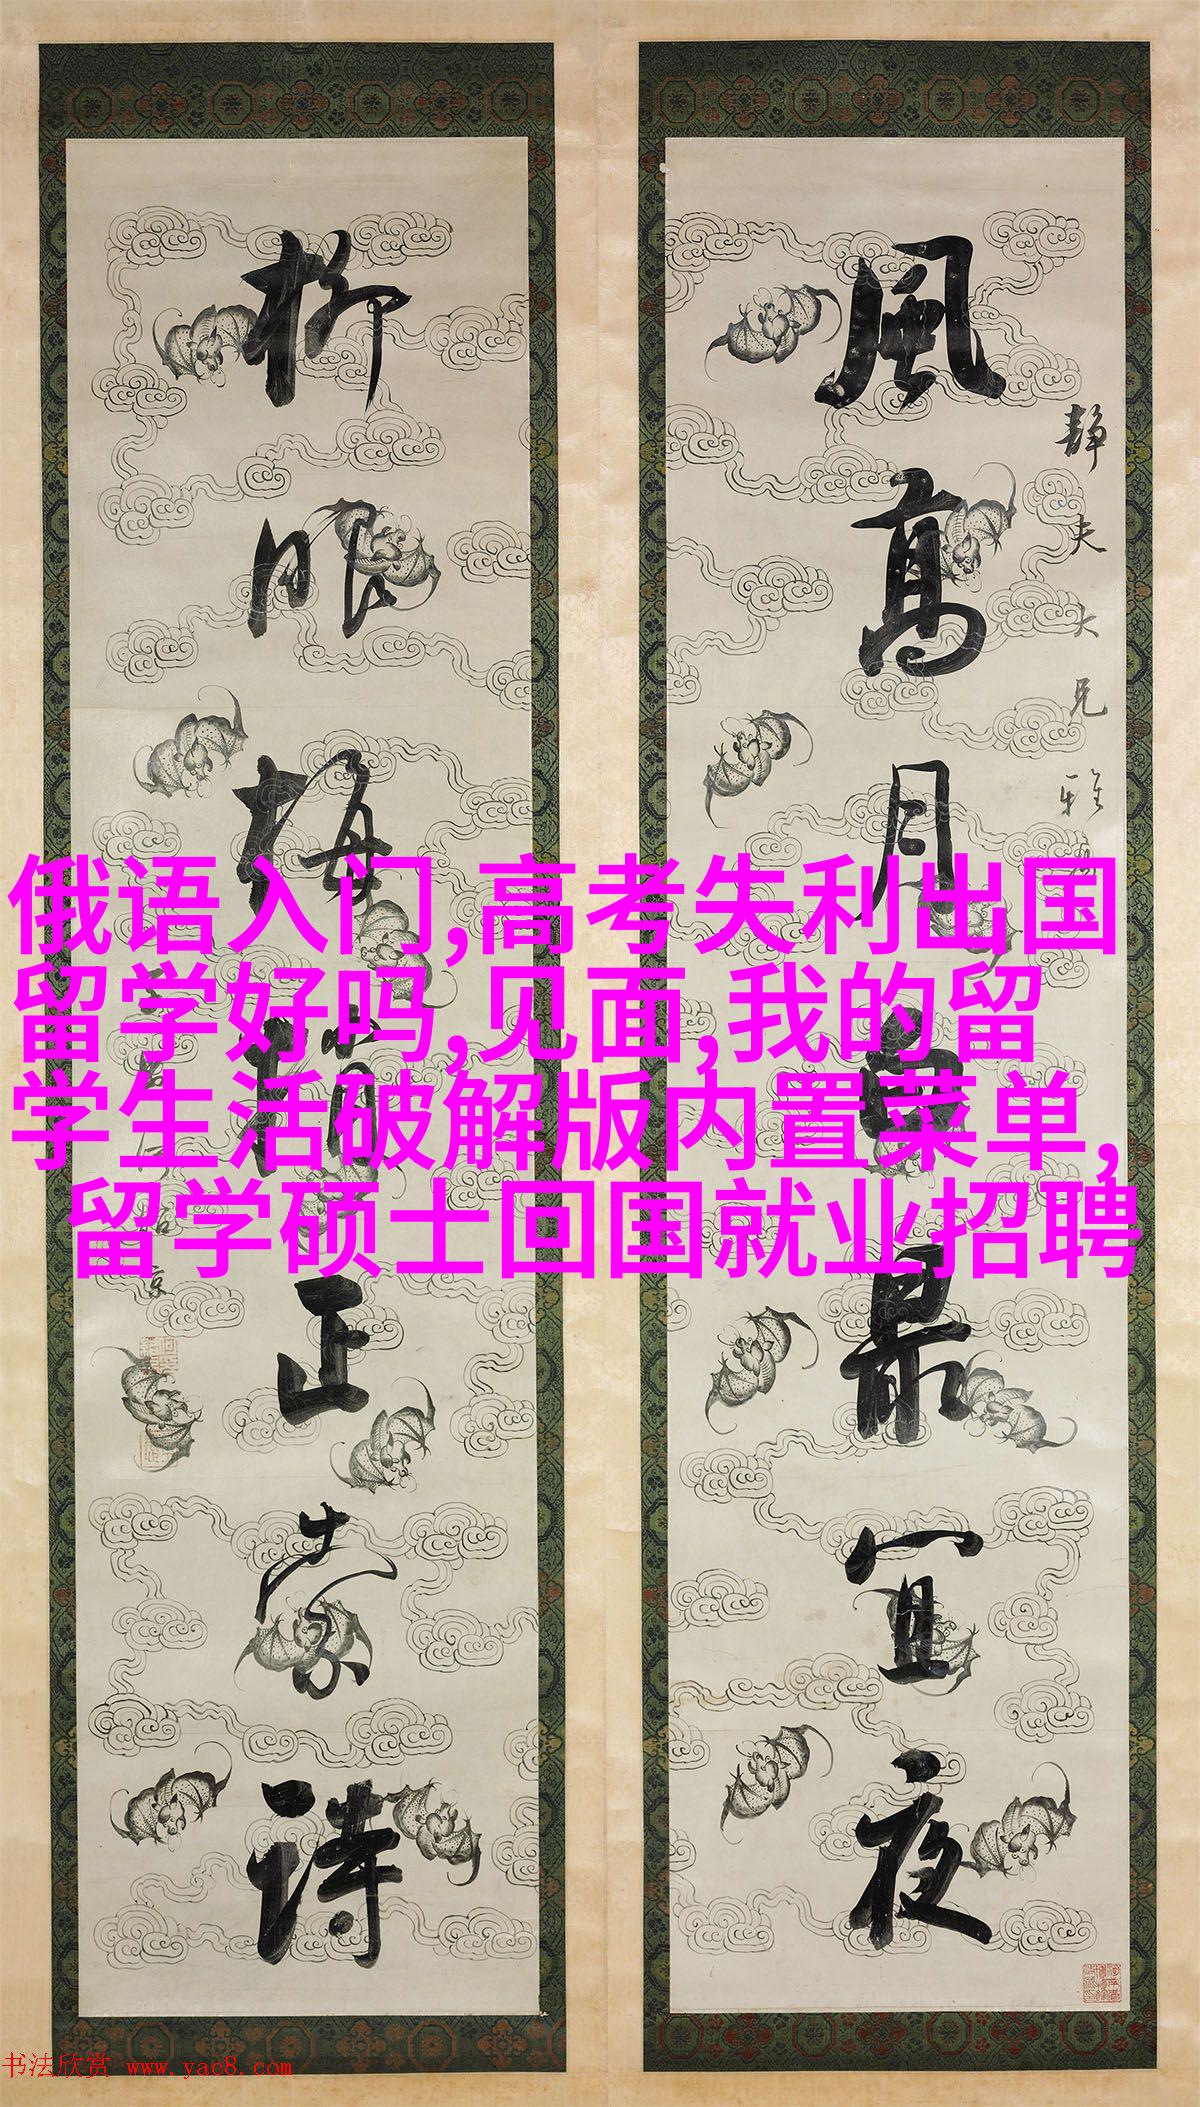 風高月白最宜夜
靜夫大兄雅
柳眼梅正索詩
俄语入门,高考失利出国
留学好吗,见面,我的留
学生活破解版内置菜单,
留学硕士回国就业招聘
书法欣赏 www.yac8.com